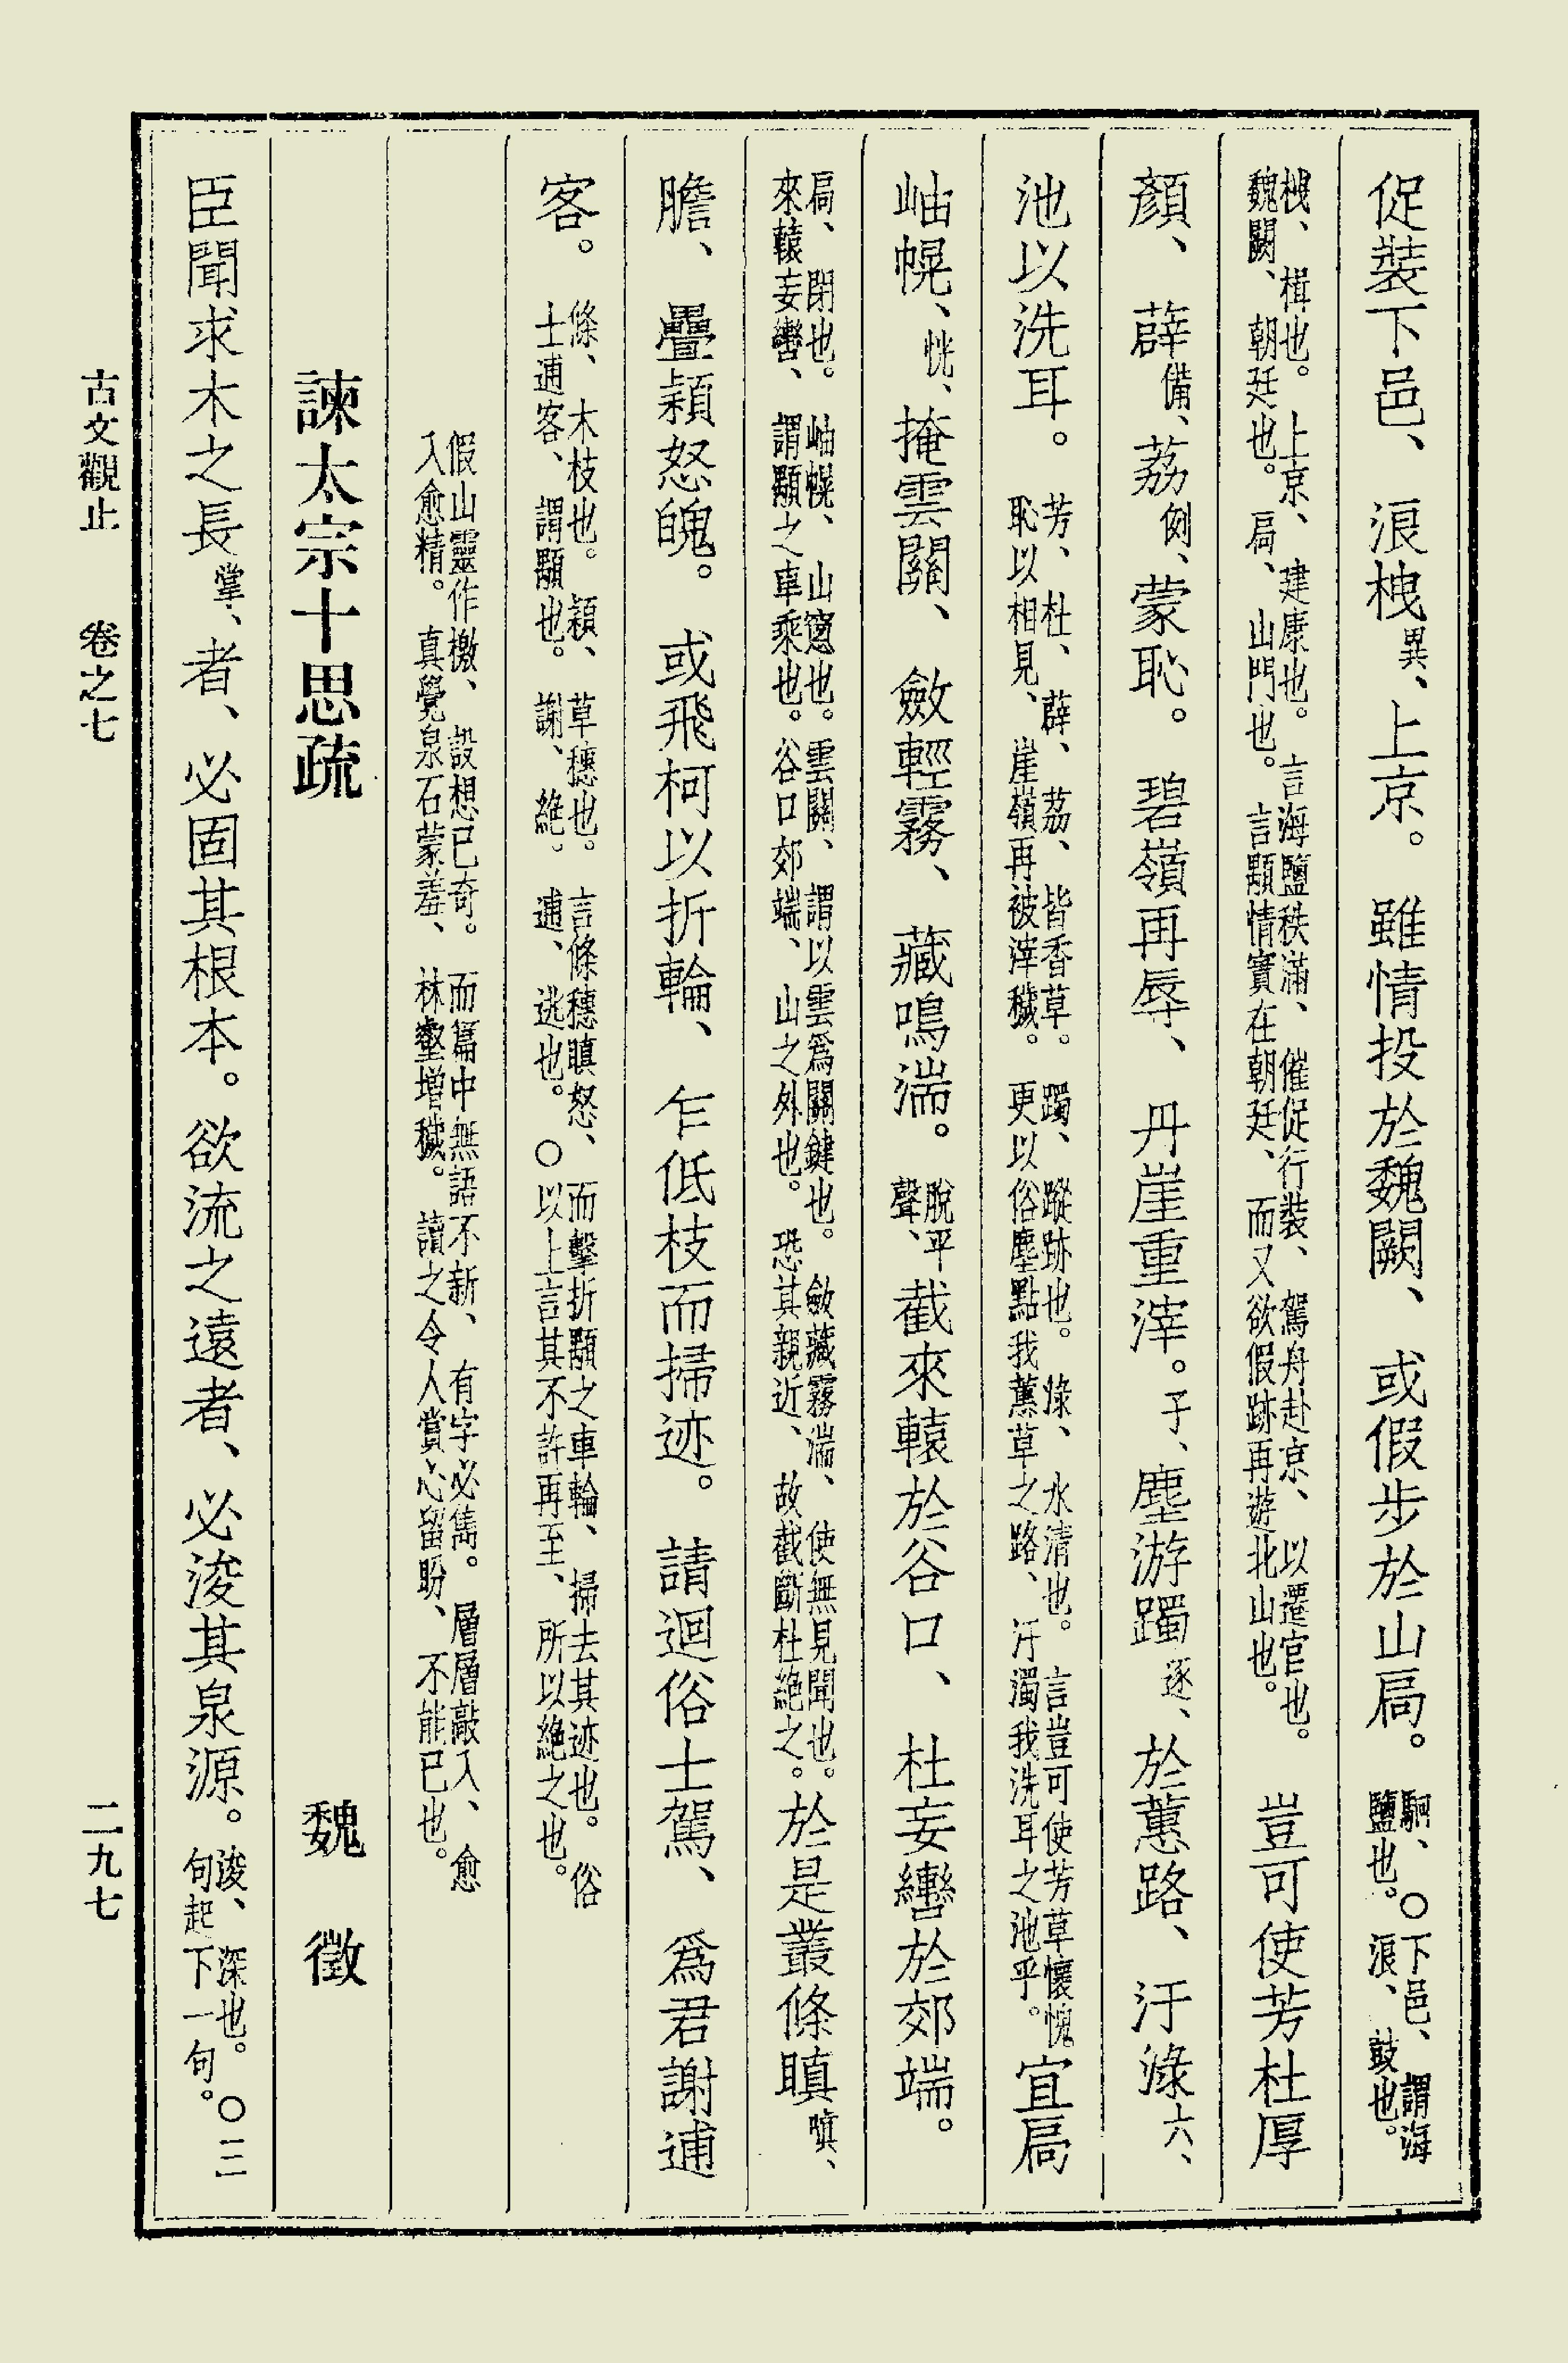 促裝下邑、浪栧異、上京。雖情投於魏闕、或假步於山扃。駉、○下邑、謂海鹽也。浪、鼓也。
栧、楫也。上京、建康也。言海鹽秩滿、催促行裝、駕舟赴京、以遷官也。魏闕、朝廷也。扃、山門也。言顒情實在朝廷、而又欲假跡再遊北山也。豈可使芳杜厚
顏、薜備、荔例、蒙恥。碧嶺再辱、丹崖重滓。子、塵游躅逐、於蕙路、汙淥六、
池以洗耳。芳、杜、薜、荔、皆香草。躅、蹤跡也。淥、水清也。言豈可使芳草懷愧。恥以相見、崖嶺再被滓穢。更以俗塵點我薰草之路、汙濁我洗耳之池乎。宜扃
岫幌、恍、掩雲關、斂輕霧、藏鳴湍。脫平聲、截來轅於谷口、杜妄轡於郊端。
扃、閉也。岫幌、山窻也。雲關、謂以雲爲關鍵也。斂藏霧湍、使無見聞也。來轅妄轡、謂顒之車乘也。谷口郊端、山之外也。恐其親近、故截斷杜絕之。於是叢條瞋嗔、
膽、疊穎怒魄。或飛柯以折輪、乍低枝而掃迹。請迴俗士駕、爲君謝逋
客。條、木枝也。穎、草穗也。言條穗瞋怒、而擊折顒之車輪、掃去其迹也。俗士逋客、謂顒也。謝、絕。逋、逃也。○以上言其不許再至、所以絕之也。
假山靈作檄、設想已奇。而篇中無語不新、有字必雋。層層敲入、愈入愈精。真覺泉石蒙羞、林壑增穢。讀之令人賞心留盼、不能已也。
諫太宗十思疏　魏徵
臣聞求木之長掌、者、必固其根本。欲流之遠者、必浚其泉源。浚、深也。○三句起下一句。
古文觀止　卷之七　二九七